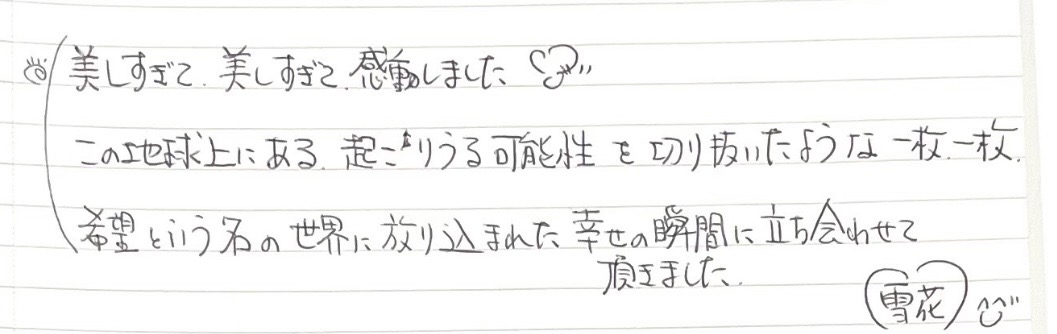 美しすぎて、美しすぎて、感動しました
この地球上にある、起こりうる可能性を切り抜いたような一枚、一枚、
希望という名の世界に放り込まれた幸せの瞬間に立ち会わせて
頂きました、
雪花